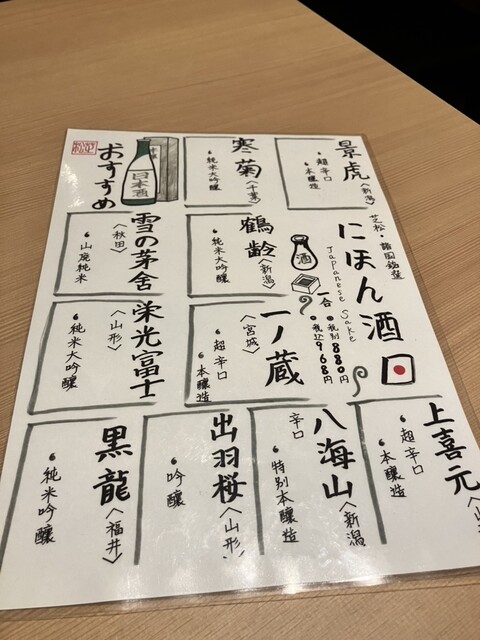 芝松・諸国銘選
にほん酒
Japanese Sake
一合
・税別880円
・税込968円
酒
景虎〈新潟〉
・超辛口
・本醸造
寒菊〈千葉〉
・純米大吟醸
おすすめ
日本酒
鶴齢〈新潟〉
・純米大吟醸
雪の茅舎
〈秋田〉
・山廃純米
一ノ蔵
〈宮城〉
・超辛口
・本醸造
栄光冨士
〈山形〉
・純米大吟醸
上喜元
・超辛口
・本醸造
八海山〈新潟〉
辛口
・特別本醸造
出羽桜〈山形〉
・吟醸
黒龍〈福井〉
・純米吟醸